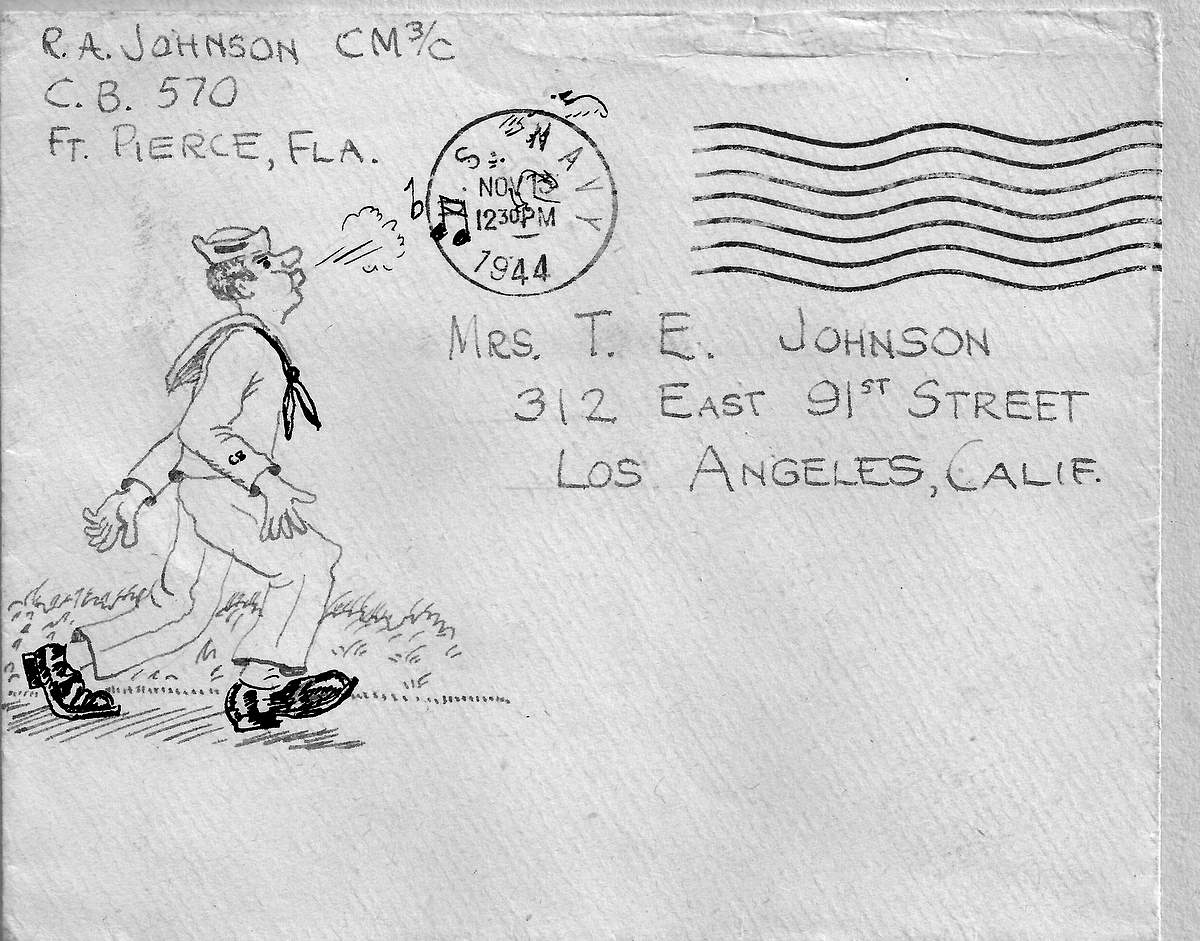 R. A. JOHNSON CM 3/C
C. B. 570
FT. PIERCE, FLA.
S. NAVY
NOV 13
12 30 PM
1944
MRS. T. E. JOHNSON
312 EAST 91ST STREET
LOS ANGELES, CALIF.